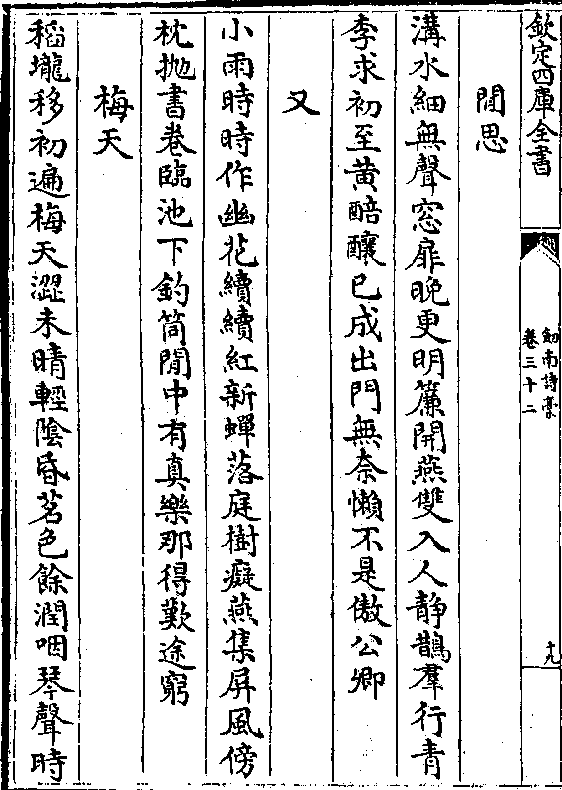 欽定四庫全書
劒南詩稾
卷三十二
十九
閒思
溝水細無聲窓扉晚更明簾開燕雙入人静鵲羣行青
李求初至黄醅釀已成出門無奈懶不是傲公卿
又
小雨時時作幽花續續紅新蟬落庭樹癡燕集屏風傍
枕抛書卷臨池下釣筒閒中有真樂那得歎途窮
梅天
稻壠移初遍梅天澀未晴輕陰昏茗色餘潤咽琴聲時